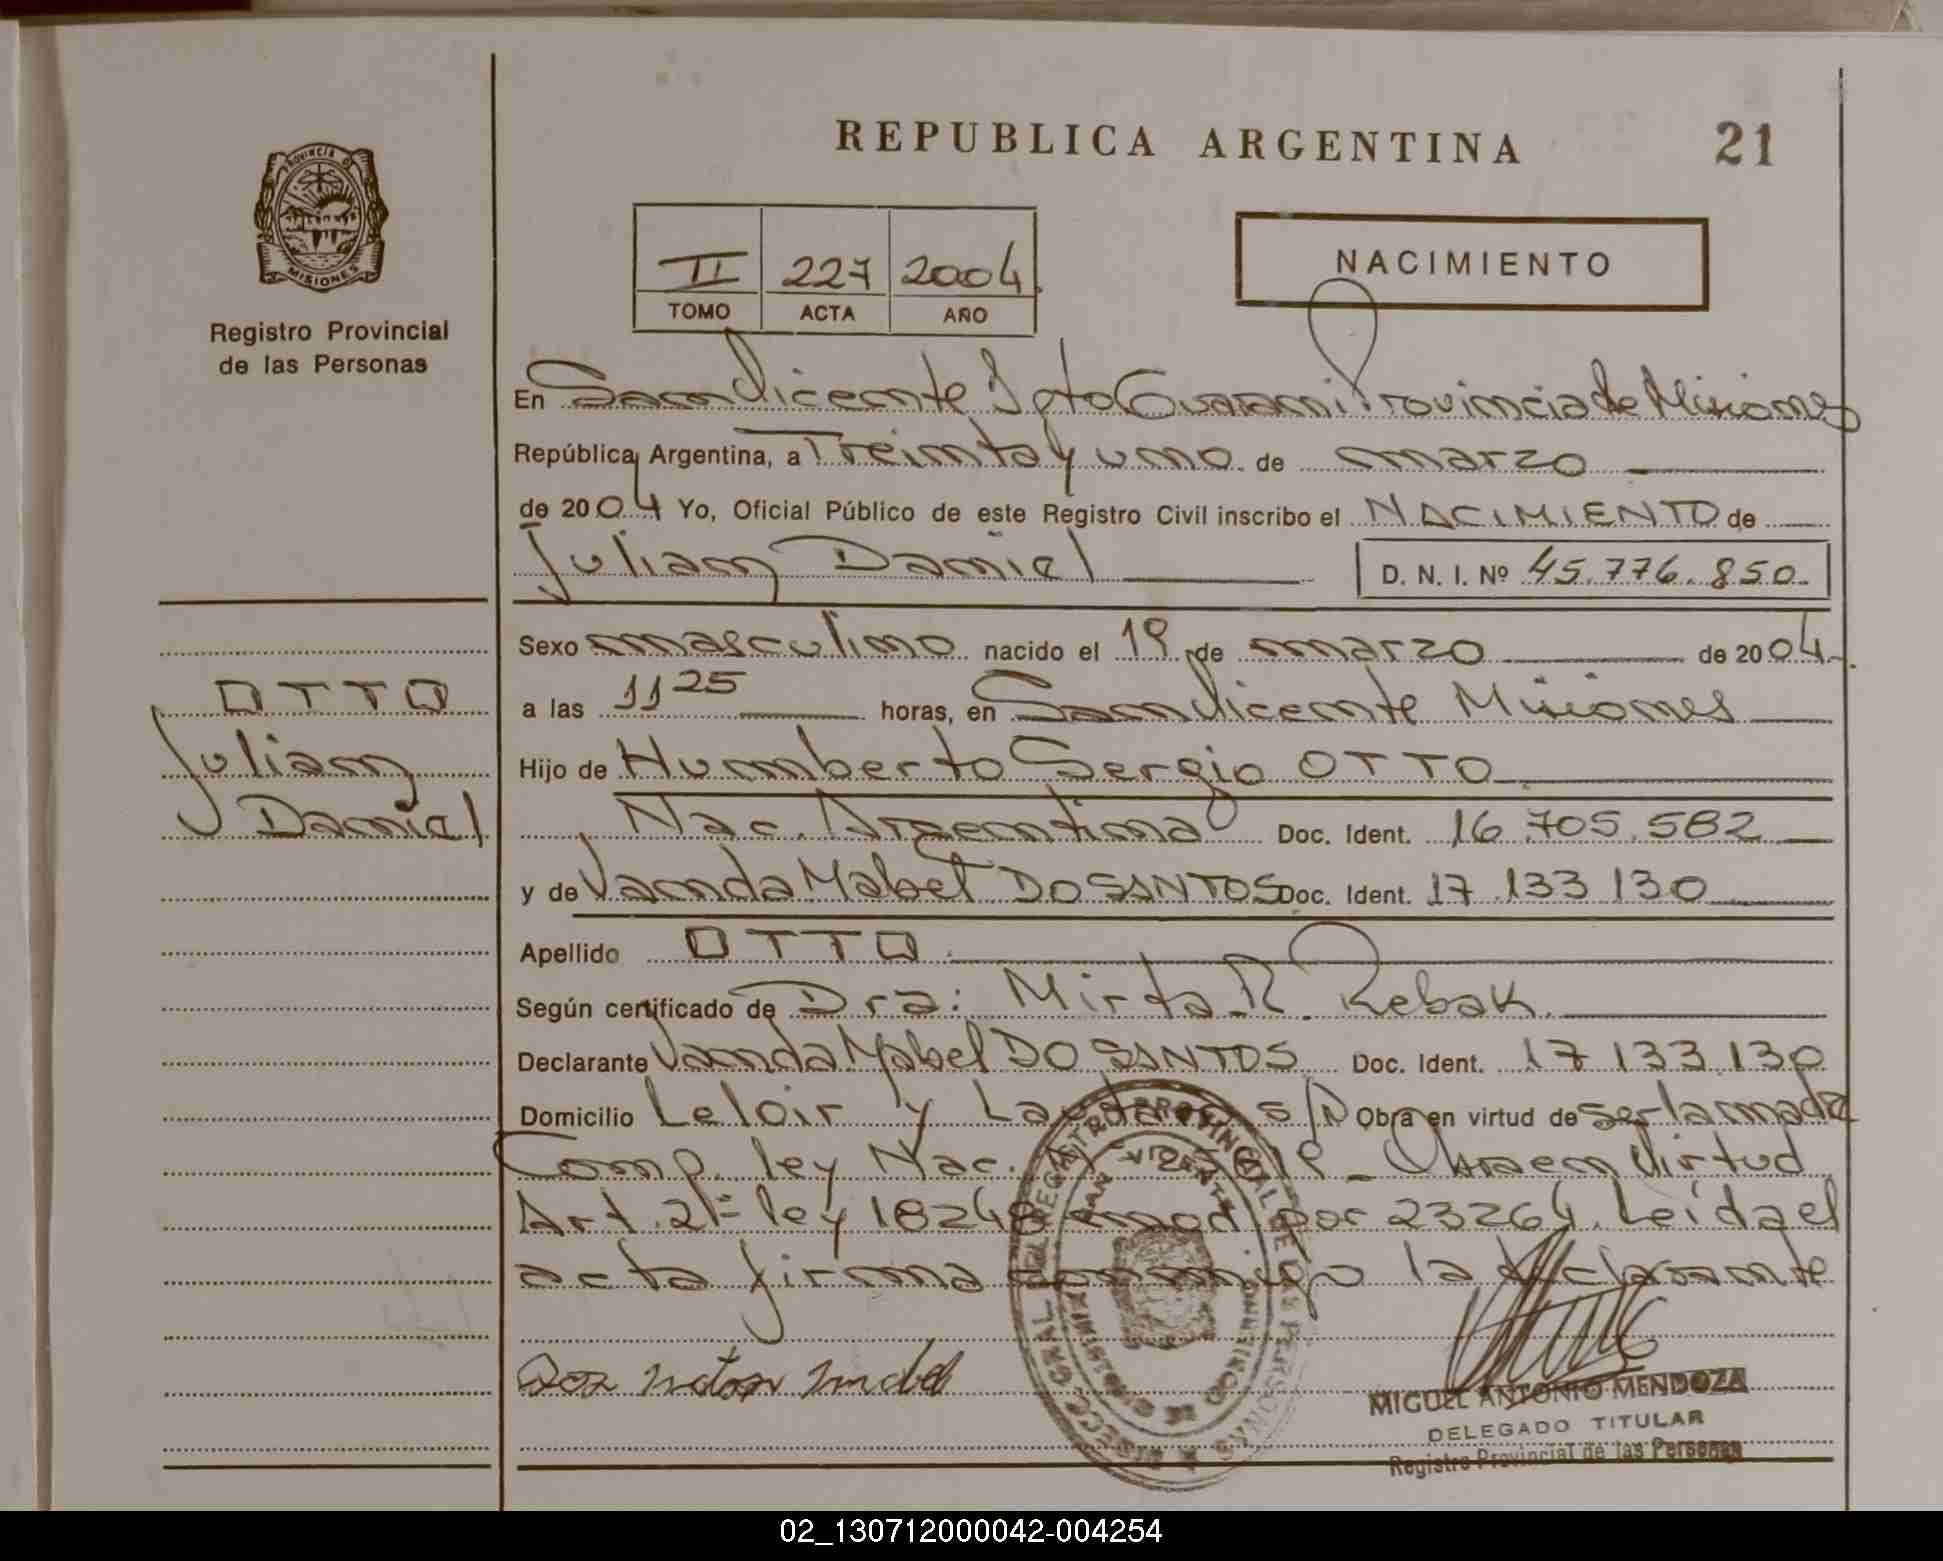 REPUBLICA ARGENTINA
21
PROVINCIA D
MISIONES
Registro Provincial
de las Personas
II 227 2004
TOMO ACTA AÑO
NACIMIENTO
En San Vicente Dpto Guarani Provincia de Misiones
República Argentina, a Treinta y uno de marzo
de 2004 Yo, Oficial Público de este Registro Civil inscribo el NACIMIENTO de
Julian Daniel
D. N. I. Nº 45.776.850.
Sexo masculino nacido el 19 de marzo de 2004
a las 11 25 horas, en San Vicente Misiones
Hijo de Humberto Sergio OTTO
Nac. Argentina Doc. Ident. 16.705.582
y de Vanda Mabel DO SANTOS Doc. Ident. 17.133.130
Apellido OTTO
Según certificado de Dra: Mirta R. Rebak
Declarante Vanda Mabel DO SANTOS Doc. Ident. 17 133.130
Domicilio Leloir y s/N Obra en virtud de ser la madre
Comp. ley Nac. Obra en virtud
Art. 21= ley 18248 mod. por 23264. Leída el
acta firma conmigo la declarante
OTTO
Julian
Daniel
MIGUEL ANTONIO MENDOZA
DELEGADO TITULAR
Registro Provincial de las Personas
02_130712000042-004254